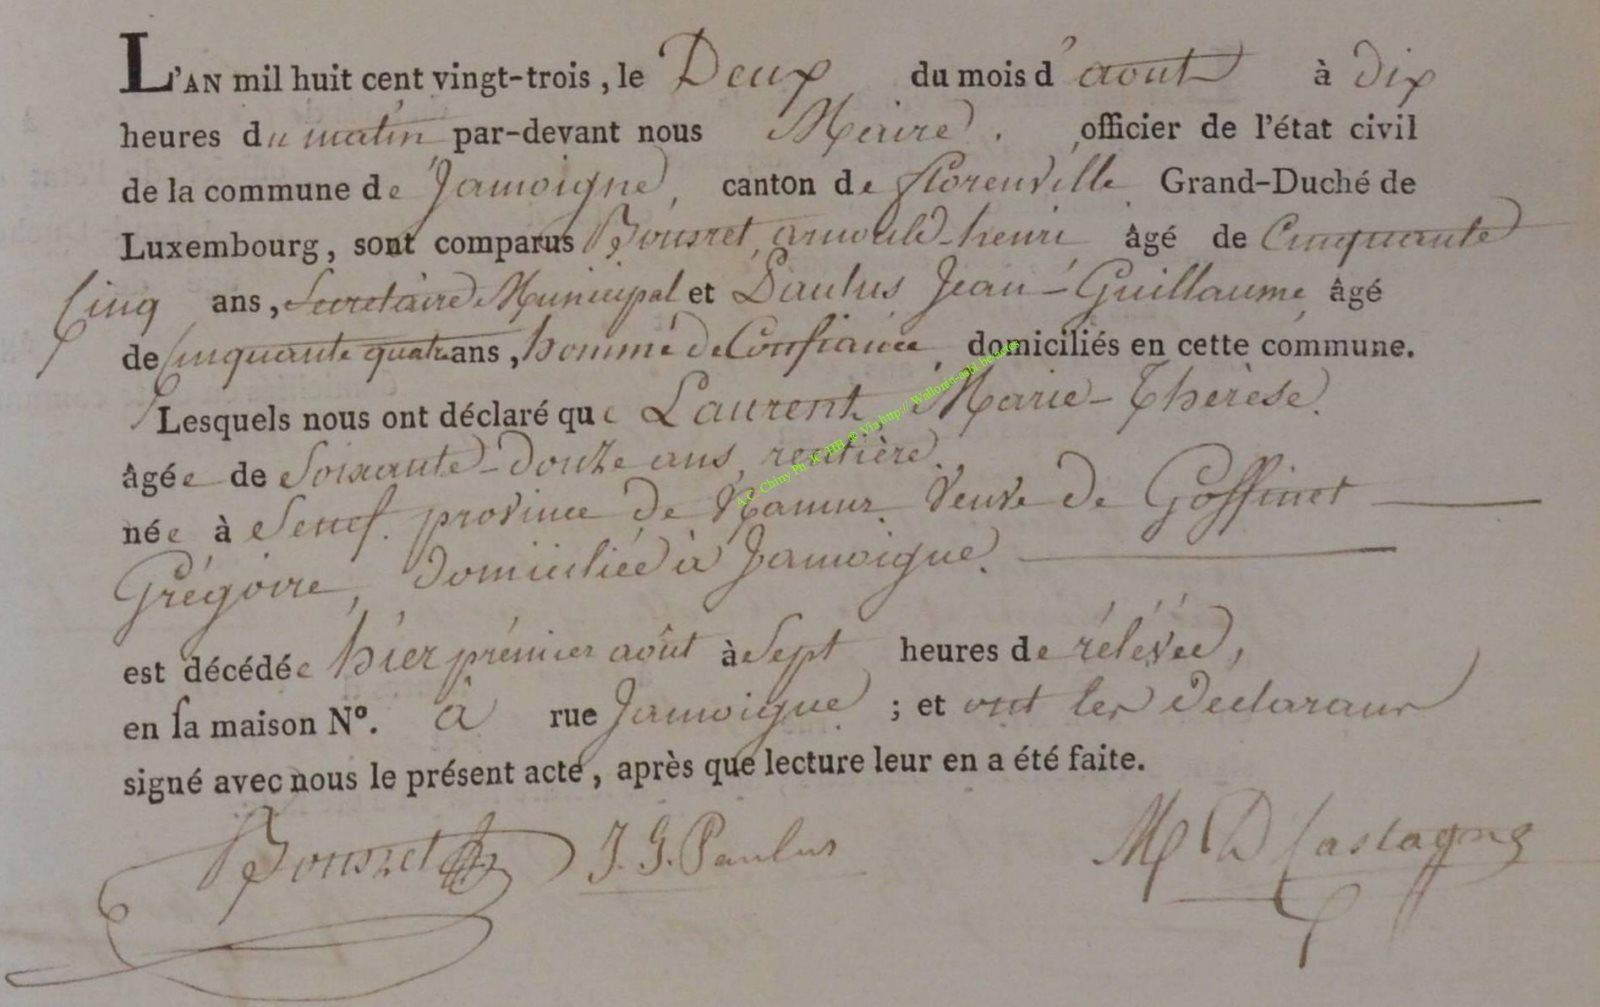 L'AN mil huit cent vingt-trois, le Deux du mois d'aout à dix
heures du matin par-devant nous Maire. officier de l'état civil
de la commune de Jamoigne, canton de florenville Grand-Duché de
Luxembourg, sont comparus Bousret, arnould-henri, âgé de Cinquante
Cinq ans, Secretaire Municipal et Paulus Jean-Guillaume, âgé
de Cinquante quatre ans, homme de Confiance, domiciliés en cette commune.
Lesquels nous ont déclaré que Laurent, Marie-Thérèse.
âgée de Soixante-douze ans, rentière.
née à province de Namur. Veuve de Goffinet
Grégoire, domiciliée à Jamoigne.
est décédée hier prémier août à Sept heures de rélévée,
en sa maison Nº. à rue Jamoigne ; et ont les declarans
signé avec nous le présent acte, après que lecture leur en a été faite.
Bousret J. G. Paulus M D Castagne